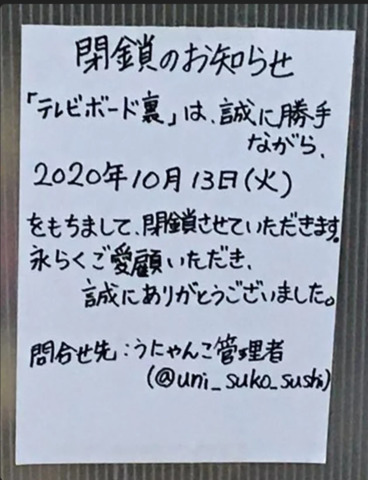 閉鎖のお知らせ
「テレビボード裏」は、誠に勝手
ながら、
2020年10月13日(火)
をもちまして、閉鎖させていただきます。
永らくご愛顧いただき、
誠にありがとうございました。
問合せ先：うにゃんこ管理者
(@uni_suko_sushi)